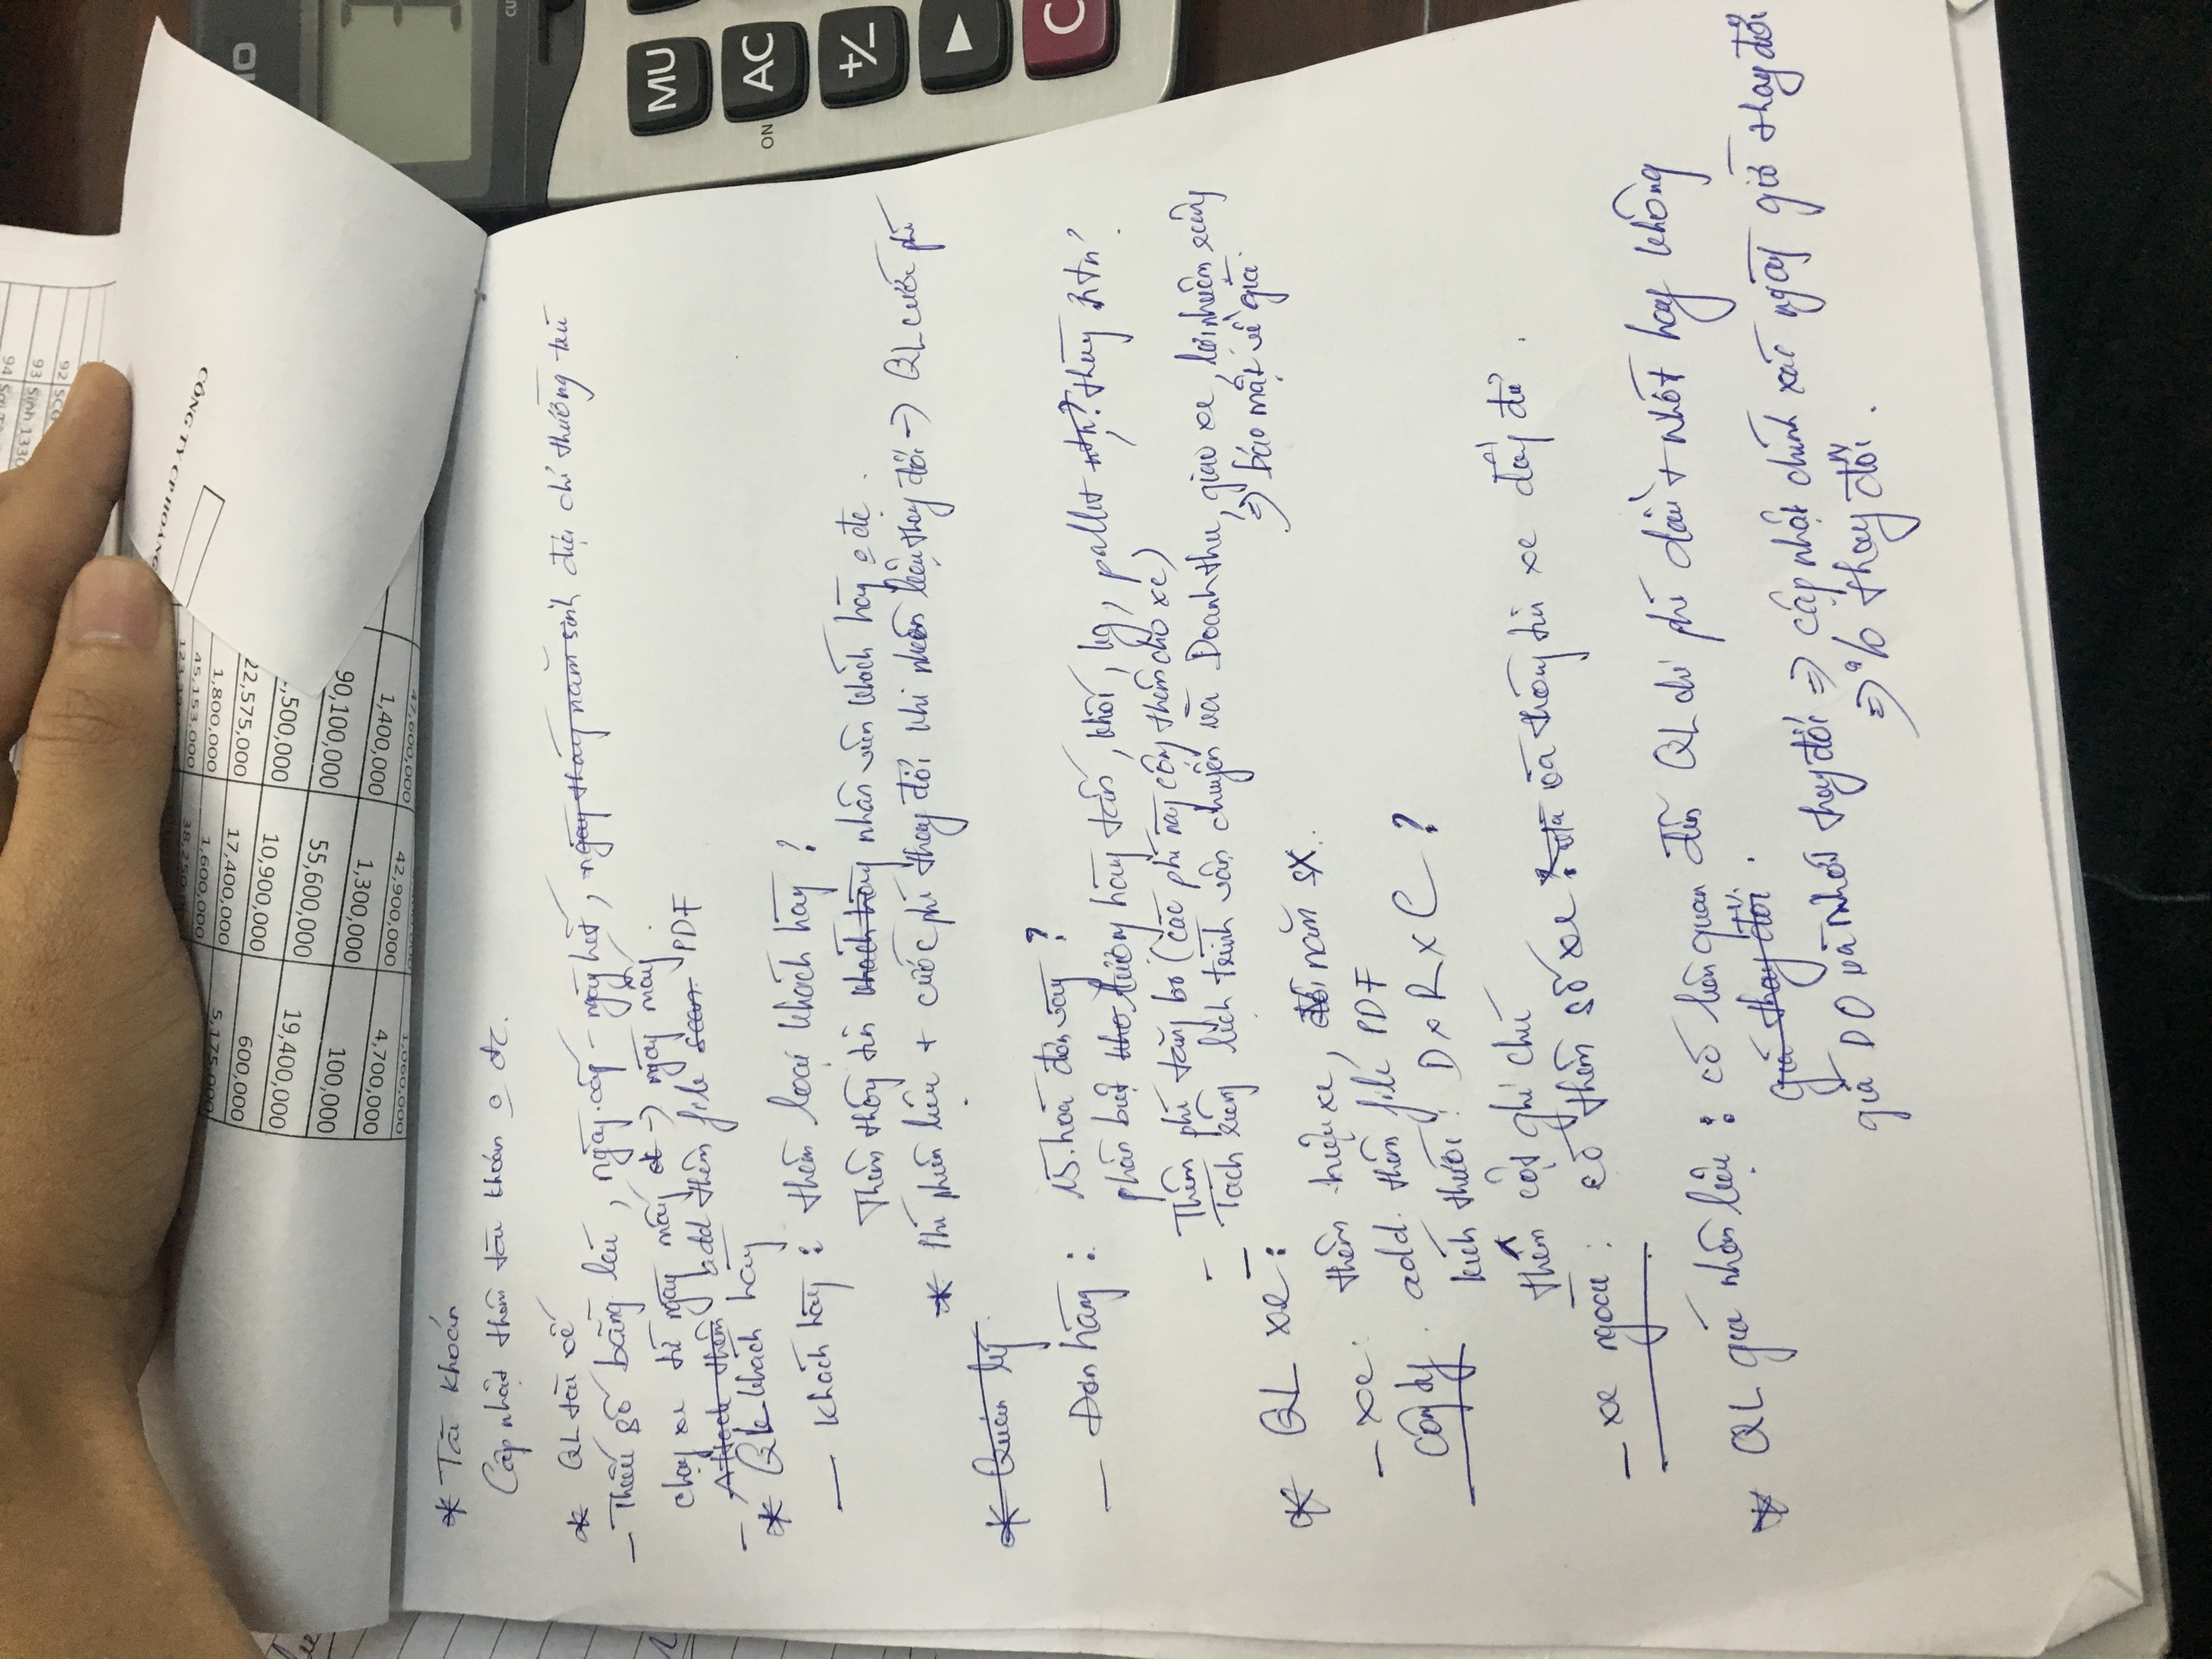 94
93 Sinh 1330
92
CÔNG TY CP HOÀNG
45,153,000
1,800,000 1,600,000 5,175,000
22,575,000 17,400,000 600,000
,500,000 10,900,000 19,400,000
90,100,000 55,600,000 100,000
1,400,000 1,300,000 4,700,000
47,600,000 42,900,000 1,060,000
* Tài khoản
Cập nhật thêm tài khoản o đc.
* QL tài xế
- Thiếu số bằng lái, ngày cấp - ngày hết, ngày tháng năm sinh địa chỉ thường trú
chạy xe từ ngày mấy -> ngày mấy.
- Attack thêm add thêm file scan PDF
* QL khách hàng
- Khách hàng : thêm loại khách hàng ?
Thêm thông tin khách hàng nhân viên khách hàng o đc.
* Phí nhiên liệu + cước phí thay đổi khi nhiên liệu thay đổi -> QL cước phí
* Quản lý
- Đơn hàng : 15. hoá đơn vậy ?
phân biệt lượng hàng tấn, khối, kg, pallet ntn? thùng ntn?
- Thêm phí tăng bo (các phí này cộng thêm cho xe)
- Tách riêng lịch trình vận chuyển và Doanh thu, giao xe, lợi nhuận riêng
=> bảo mật về giá.
* QL xe :
- xe : thêm hiệu xe, đời năm SX.
công ty . add. thêm file PDF
kích thước : D x R x C ?
thêm cột ghi chú
- xe ngoài : có thêm số xe ? và thông tin xe đầy đủ.
* QL giá nhiên liệu : có liên quan đến QL chi phí dầu + nhớt hay không
giá thay đổi.
giá DO và nhớt thay đổi => cập nhật chính xác ngày giờ thay đổi
=> % thay đổi.
CU
MU
ON AC
+/-
C